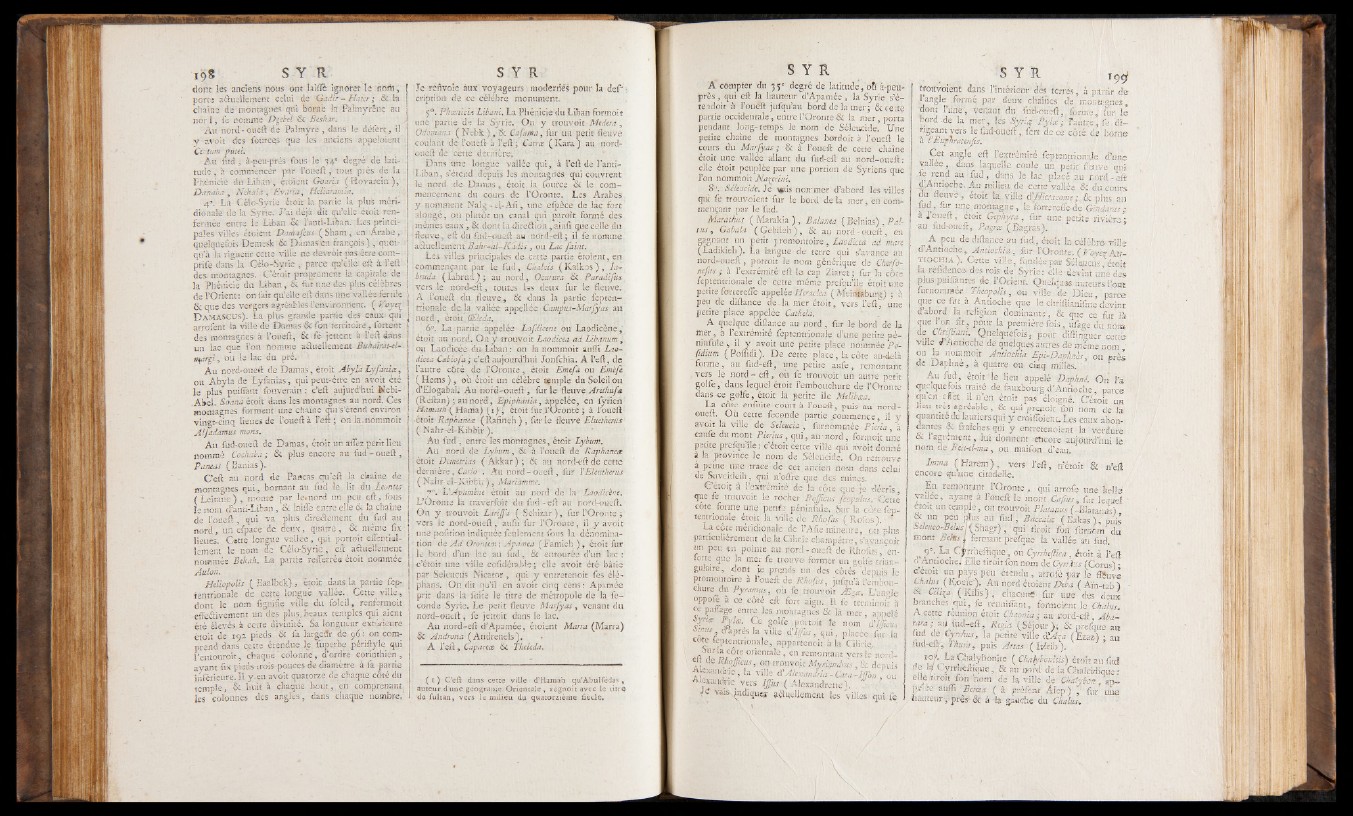 198 S Y R
dont les anciens nous ont laissé ignorer le nom,
porte actuellement celui de Gadir-Hair; & la
chaîne de montagnes qui borne la Palmyrène au
nord, se nomme Djebel & Beshar.
Au nord-ouest de Palmyre, dans le désert, il
y avoit des sources que les anciens appeloient
Centum putei.
Au sud, à-peu-près sous le 34e degré de lati-
tude, à commencer par l'ouest, tout près de la
Phénicie du Liban, étoient Goaria (Hovaein),
Danaba, Nehala, Evaria, Heliaramia.
4°. La Célo-Syrie étoit la partie la plus méri-
dionale de la Syrie. J'ai déjà dit qu'elle étoit ren-
fermée entre le Liban & l'anti-Liban. Les princi-
pales villes étoient Damascus (Sham, en Arabe,
quelquefois Demesk & Damas en françois), quoi-
qu'à la rigueur cette ville ne devroit pas être com-
prise dans la Célo-Syrie, parce qu'elle est à l'est
des montagnes. C'étoit proprement la capitale de
la Phénicie du Liban, & fut une des plus célèbres
de l'Orient: on sait qu'elle est dans une vallée fertile
& que des vergers agréables l'environnent. (Voyez
DAMASCUS). La plus grande partie des eaux qui
arrosent la ville de Damas & son territoire, sortent
des montagnes à l'ouest, & se jettent à l'est dans
un lac que l'on nomme actuellement Bahairat-el-
margi, ou le lac du pré.
Au nord-ouest de Damas, étoit Abyla Lysaniæ,
ou Abyla de Lysanias, qui peut-être en avoit été
le plus puissant souverain: c'est aujourd'hui Nebi-
Abel. Soana étoit dans les montagnes au nord. Ces
montagnes forment une chaîne qui s'étend environ
vingt-cinq lieues de l'ouest à l'est; on la nommoit
Alsadamus mons.
Au sud-ouest de Damas, étoit un assez petit lieu
nommé Cochaba; & plus encore au sud-ouest,
Paneas (Banias).
C'est au nord de Paneas qu'est la chaîne de
montagnes qui, bornant au sud le lit du Leontes
(Leitani), tourne par le nord un peu est, sous
le nom d'anti-Liban, & laisse entre elle & la chaîne
de l'ouest, qui va plus directement du sud au
nord, un espace de deux, quatre, & même six
lieues. Cette longue vallée, qui portoit essentiel-
lement le nom de Célo-Syrie, est actuellement
nommée Bekah. La partie resserrée étoit nommée
Aulon.
Heliopolis (Baalbek), étoit dans la partie sep-
tentrionale de cette longue vallée. Cette ville,
dont le nom signifie ville du soleil, renfermoit
effectivement un des plus beaux temples qui aient
été élevés à cette divinité. Sa longueur extérieure
étoit de 192 pieds & sa largeur de 96: on com-
prend dans cette étendue le superbe péristyle qui
l'entouroit, chaque colonne, d'ordre corinthien,
ayant six pieds trois pouces de diamètre à sa partie
inférieure. Il y en avoit quatorze de chaque côté du
temple, & huit à chaque bout, en comprenant
les colonnes des angles, dans chaque nombre.
S Y R
Je renvoie aux voyageurs modernes pour la des-
cription de ce célèbre monument.
5°. Phœnicia Libani. La Phénicie du Liban formoit
une partie de la Syrie. On y trouvoit Medera,
Odamana (Nebk), & Casama, sur un petit fleuve
coulant de l'ouest à l'est; Carræ (Kara) au nord-
ouest de cette dernière.
Dans une longue vallée qui, à l'est de l'anti-
Liban, s'étend depuis les montagnes qui couvrent
le nord de Damas, étoit la source & le com-
mencement du cours de l'Oronte. Les Arabes
y nomment Nahr-el-Asi, une espèce de lac fort
alongé, ou plutôt un canal qui paroît formé des
mêmes eaux, & dont la direction, ainsi que celle du
fleuve, est du sud-ouest au nord-est; il se nomme
actuellement Bahr-al-Kades, ou Lac saint.
Les villes principales de cette partie étoient, en
commençant par le sud, Chalcis (Kalkos), Ia-
bruda (Iabrud); au nord, Ocurura & Paradisus
vers le nord-est, toutes les deux sur le fleuve.
A l'ouest du fleuve, & dans la partie septen-
trionale de la vallée appellée Campus-Marsyas au
nord, étoit Œleda.
6°. La partie appelée Laodicene ou Laodicène,
étoit au nord. On y trouvoit Laodicea ad Libanum,
ou Laodicée du Liban: on la nommoit aussi Lao-
dicea Cabiosa; c'est aujourd'hui Jouschia. A l'est, de
l'autre côté de l'Oronte, étoit Emesa ou Emese
(Hems), où étoit un célèbre temple du Soleil ou
d'Elogabal. Au nord-ouest, sur le fleuve Arethusa
(Restan); au nord, Epiphania, appelée, en syrien
Hamath (Hama) (1); étoit sur l'Oronte; à l'ouest
étoit Raphaneæ (Rafineh), sur le fleuve Eleutheris
(Nahr-el-Kibbir).
Au sud, entre les montagnes, étoit Lybum.
Au nord de Lybum, & à l'ouest de Raphaneæ
étoit Demetrias (Akkar); & au nord-est de cette
dernière, Carion. Au nord-ouest, sur l'Eleutherus
(Nahr-el-Kibbir), Mariamme.
7°. L'Apamène étoit au nord de la Laodicène.
L'Oronte la traversoit du sud-est au nord-ouest.
On y trouvoit Larissa (Schizar), sur l'Oronte;
vers le nord-ouest, aussi sur l'Oronte, il y avoit
une position indiquée seulement sous la dénomina-
tion de Ad Orontem: Apamea (Famieh), étoit sur
le bord d'un lac au sud, & entourée d'un lac:
c'étoit une ville considérable; elle avoit été bâtie
par Seleucus Nicator, qui y entretenoit ses élé-
phans. On dit qu'il en avoit cinq cens: Apamée
prit dans la suite le titre de métropole de la se-
conde Syrie. Le petit fleuve Marsyas, venant du
nord-ouest, se jettoit dans le lac.
Au nord-est d'Apamée, étoient Marra (Marra)
& Androna (Andrenels).
A l'est, Capareæ & Theleda.
(1) C'est dans cette ville d'Hamah qu'Abulfedas,
auteur d'une géographie Orientale, régnoit avec le titre
de sultan, vers le milieu du quatorzième siècle.
S Y R
A compter du 35e degré de latitude, ou à-peu-
près, qui est la hauteur d'Apamée, la Syrie s'é-
tendoit à l'ouest jusqu'au bord de la mer; & cette
partie occidentale, entre l'Oronte & la mer, porta
pendant long-temps le nom de Séleucide. Une
petite chaîne de montagnes bordoit à l'ouest le
cours du Marsyas; & à l'ouest de cette chaîne
étoit une vallée allant du sud-est au nord-ouest:
elle étoit peuplée par une portion de Syriens que
l'on nommoit Nazerini.
8°. Séleucide. Je vais nommer d'abord les villes
qui se trouvoient sur le bord de la mer, en com-
mençant par le sud.
Marathus (Marakia), Balanea (Belnias), Pal-
tus, Gabala (Gebileh), & au nord-ouest, en
gagnant un petit promontoire, Laodicea ad mare
(Ladikieh). La langue de terre qui s'avance au
nord-ouest, portoit le nom générique de Charfo-
nesus; à l'extrémité est le cap Ziaret; sur la côte
septentrionale de cette même presqu'île étoit une
petite forteresse appelée Heraclea (Meinasburg); à
peu de distance de la mer étoit, vers l'est, une
petite place appelée Cathela.
A quelque distance au nord, sur le bord de la
mer, à l'extrémité septentrionale d'une petite pé-
ninsule, il y avoit une petite place nommée Po-
sidium (Possidi). De cette place, la côte au-delà
forme, au sud-est, une petite anse, remontant
vers le nord-est, où se trouvoit un autre petit
golfe, dans lequel étoit l'embouchure de l'Oronte
dans ce golfe, étoit la petite île Melibœa.
La côte ensuite court à l'ouest, puis au nord-
ouest. Où cette seconde partie commence, il y
avoit la ville de Seleucia, surnommée Pieria, à
cause du mont Pierius, qui, au nord, formoit une
petite presqu'île: c'étoit cette ville qui avoit donné
à la province le nom de Séleucide. On retrouve
à peine une trace de cet ancien nom dans celui
de Suveidieh, qui n'offre que des ruines.
C'étoit à l'extrémité de la côte que je décris,
que se trouvoit le rocher Rossicus scopulus. Cette
côte forme une petite péninsule. Sur la côte sep-
tentrionale étoit la ville de Rhosus (Rosos).
La côte méridionale de l'Asie mineure, ou plus
particulièrement de la Cilicie champêtre, s'avançoit
un peu en pointe au nord-ouest de Rhosus, en-
sorte que la mer se trouve former un golfe trian-
gulaire, dont je prends un des côtés depuis le
promontoire à l'ouest de Rhosus, jusqu'à l'embou-
chure du Pyramus, où se trouvoit Ægæ. L'angle
opposé à ce côté est fort aigu. Il se terminoit à
ce passage entre les montagnes & la mer, appelé
Syriæ Pylæ. Ce golfe portoit le nom d'Issicus
Sinus, d'après la ville d'Issus, qui, placée sur la
côte septentrionale, appartenoit à la Cilicie.
Sur la côte orientale, en remontant vers le nord-
est de Rhossicus, on trouvoit Myriandrus, & depuis
Alexandrie, la ville d'Alexandria-Cata-Isson, ou
Alexandrie vers Issus (Alexandrette).
Je vais indiquer actuellement les villes qui se
S Y R 199
trouvoient dans l'intérieur des terres, à partir de
l'angle formé par deux chaînes de montagnes,
dont l'une, venant du sud-ouest, forme, sur le
bord de la mer, les Syriæ Pylæ; l'autre, se di-
rigeant vers le sud-ouest, sert de ce côté de borne
à l'Euphratensis.
Cet angle est l'extrémité septentrionale d'une
vallée, dans laquelle coule un petit fleuve qui
se rend au sud, dans le lac placé au nord-est
d'Antioche. Au milieu de cette vallée & du cours
du fleuve, étoit la ville d'; & plus au
sud, sur une montagne, la forteresse de Gendarus;
à l'ouest, étoit Gephyra, sur une petite rivière;
au sud-ouest, Pagræ (Bagras).
A peu de distance au sud, étoit la célèbre ville
d'Antioche, Antiochia, sur l'Oronte. (Voyez AN-
TIOCHIA). Cette ville, fondée par Séleucus, étoit
la résidence des rois de Syrie: elle devint une des
plus puissantes de l'Orient. Quelques auteurs l'ont
surnommée Theopolis, ou ville de Dieu, parce
que ce fut à Antioche que le christianisme devint
d'abord la religion dominante, & que ce fut là
que l'on fit, pour la première fois, usage du nom
de Christiani. Quelquefois, pour distinguer cette
ville d'Antioche de quelques autres de même nom,
on la nommoit Antiochia Epi-Daphnes, ou près
de Daphné, à quatre ou cinq milles.
Au sud, étoit le lieu appelé Daphné. On l'a
quelquefois traité de fauxbourg d'Antioche, parce
qu'en effet il n'en étoit pas éloigné. C'étoit un
lieu très-agréable, & qui prenoit son nom de la
quantité de lauriers qui y croissoient. Les eaux abon-
dantes & fraîches qui y entretenoient la verdure
& l'agrément, lui donnent encore aujourd'hui le
nom de Beit-el-ma, ou maison d'eau.
Imma (Harem), vers l'est, n'étoit & n'est
encore qu'une citadelle.
En remontant l'Oronte, qui arrose une belle
vallée, ayant à l'ouest le mont Casius, sur lequel
étoit un temple, on trouvoit Platanus (Blatanus),
& un peu plus au sud, Bacaiala (Bakas), puis
Seleuco-Belus (Shagr), qui étoit son surnom du
mont Belus, fermant presque la vallée au sud.
9°. La Cyrrhestique, ou Cyrrhestica, étoit à l'est
d'Antioche. Elle tiroit son nom de Cyrrhus (Corus);
c'étoit un pays peu étendu, arrosé par le fleuve
Chalus (Koeic). Au nord étoient Deba (Ain-tab)
& Ciliza (Kilis), chacune sur une des deux
branches qui, se réunissant, formoient le Chalus.
A cette réunion étoit Chaonia; au nord-est, Aba-
rara; au sud-est, Regia (Séjour), & presque au
sud de Cyrrhus, la petite ville d'Arza (Ezaz); au
sud-est, Thuris, puis Arras (Istrib).
10°. La Chalybonite (Chalybonitis) étoit au sud
de la Cyrrhestique, & au nord de la Chalcidique:
elle tiroit son nom de la ville de Chalybon, ap-
pelée aussi Beræa (à présent Alep), sur une
hauteur, près & à la gauche du Chalus.